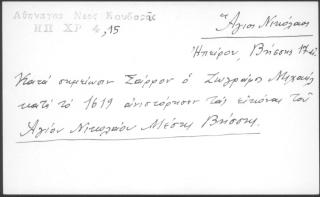 Αθανατος Νεος Κουβαρᾶς
ΗΠ ΧΡ 4, 15
Ἅγιος Νικόλαος
Ἠπείρου, Βήσσης
Κατά σημείωσιν Σάρρου ὁ ζωγράφος Μιχαήλ
κατά τό 1619 ἀνιστόρησεν τάς εἰκόνας τοῦ
Ἁγίου Νικολάου Μέσης Βήσσης.